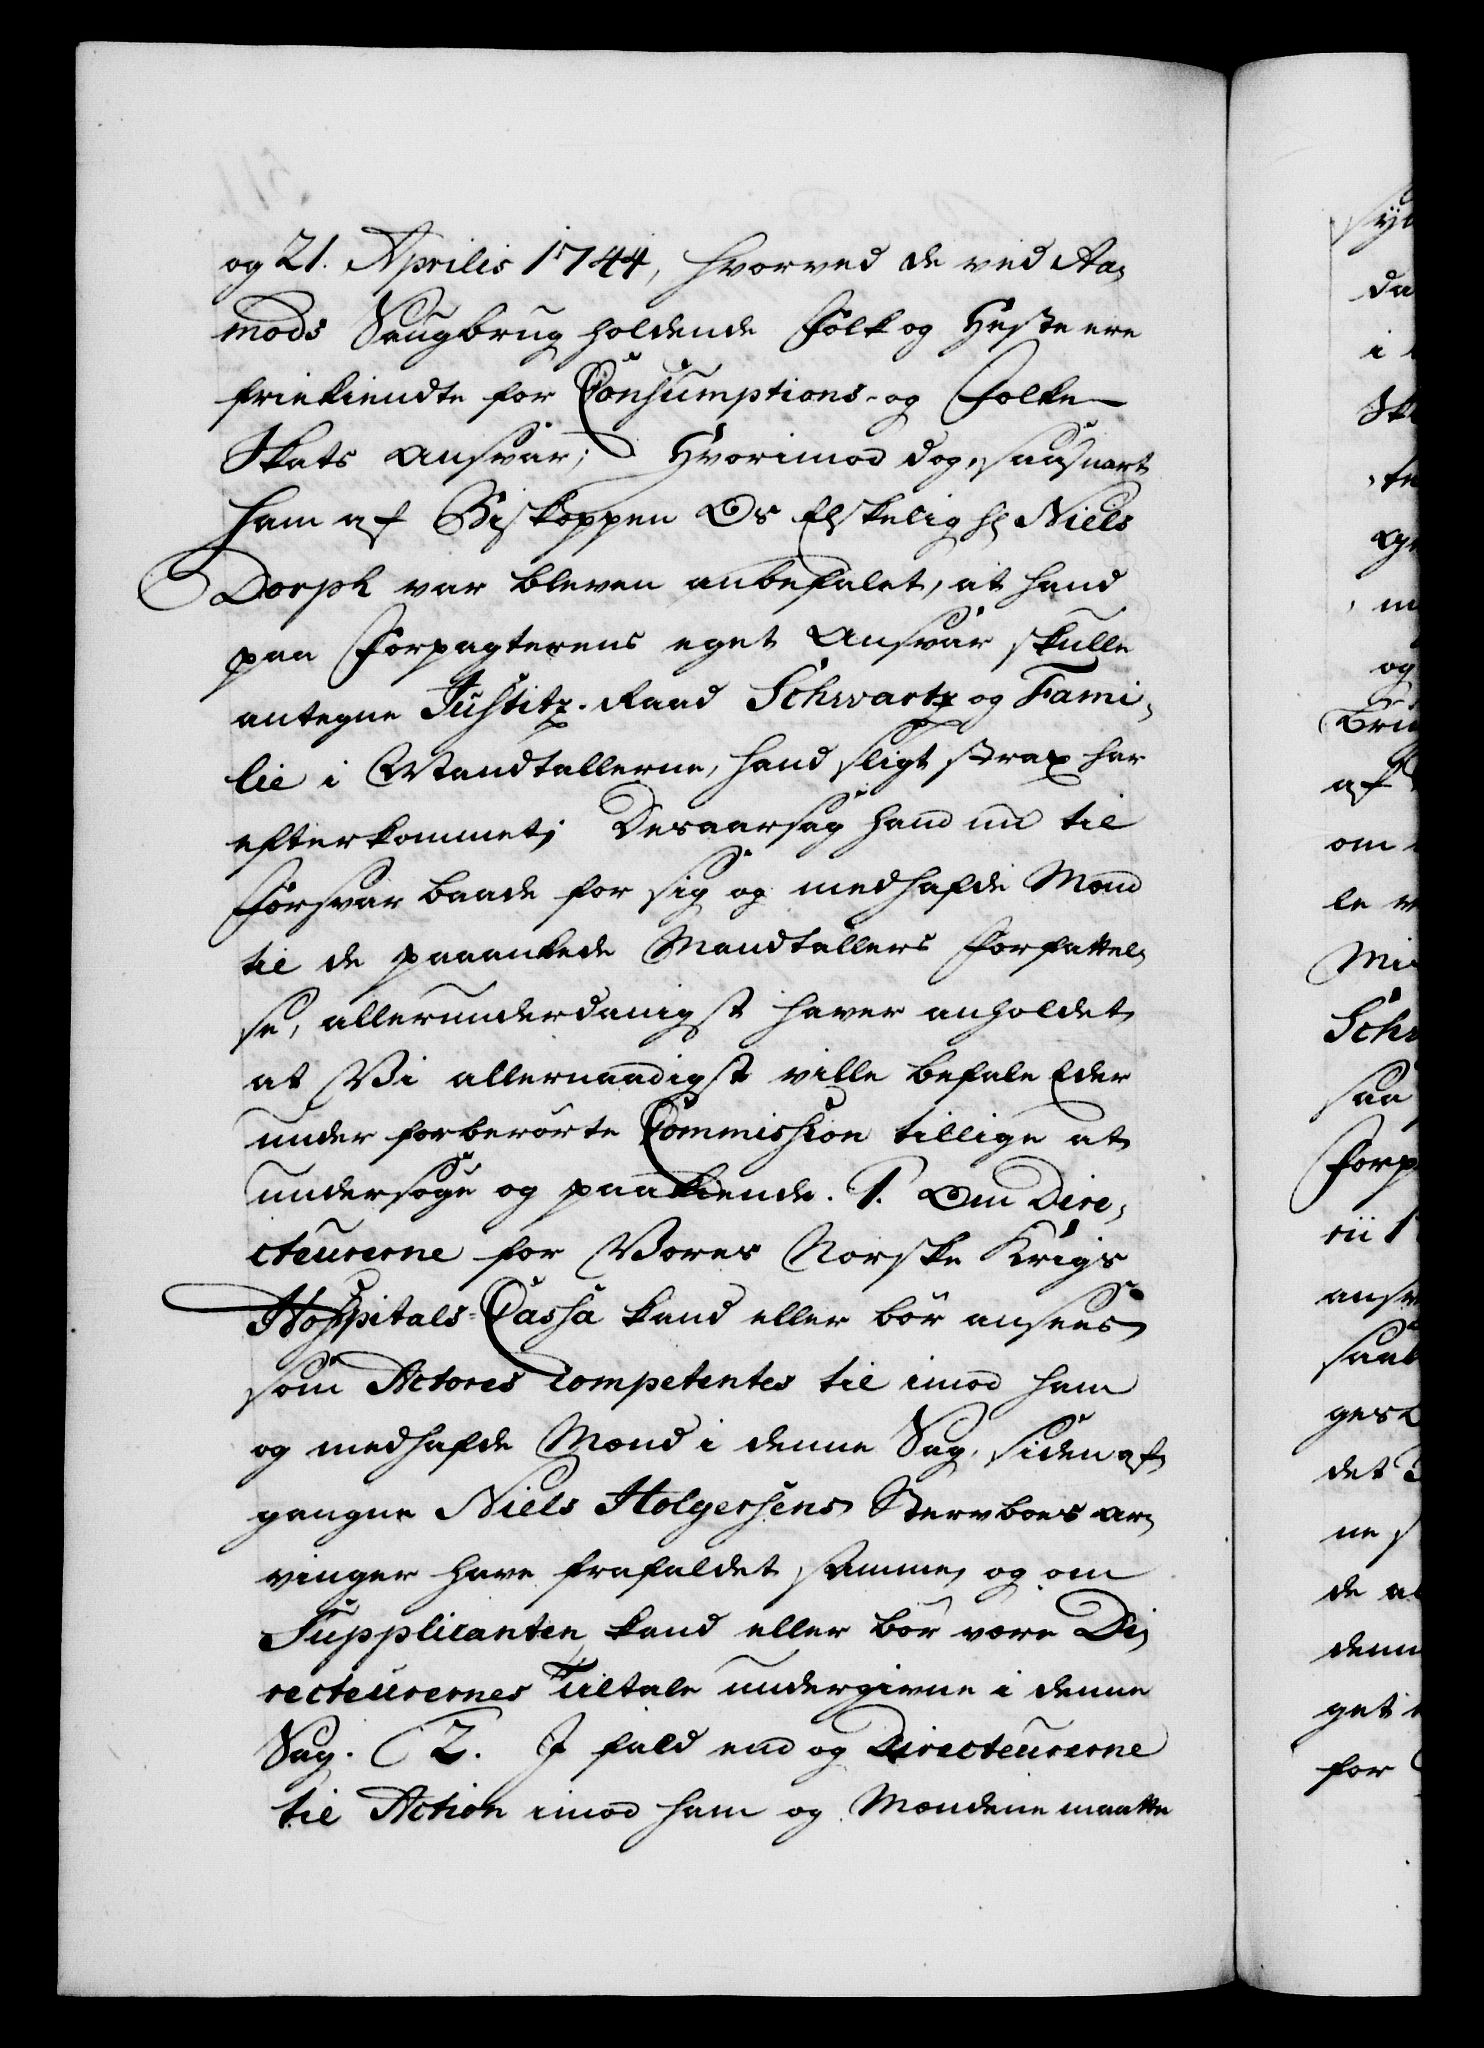 og 21. Aprilis 1744, hvorved de ved Aa-
mods Saugbrug holdende Folk og Heste ere
friekiendte for Consumptions- og Folke-
Skats Ansvar; Hvorimod dog, saasnart
ham af Biskoppen Os Elskelig Hr Niels
Dorph var bleven anbefalet, at hand
paa Forpagterens eget Ansvar skulle
antegne Justitz-Raad Schwartz og Fami-
lie i Mandtallerne, hand sligt strax har
efterkommet; Desaarsag hand nu til
Forsvar baade for sig og medhafde Mænd
til de paaankede Mandtallers Forfattel-
se, allerunderdanigst haver anholdet
at Vi allernaadigst ville befale Eder
under forberørte Commission tillige at
undersøge og paakiende. 1. Om Dire-
cteurerne for Vores Norske Krigs
Hospitals-Cassa kand eller bør ansees
som Actores competentes til imod ham
og medhafde Mænd i denne Sag, siden af-
gangne Niels Holgersens Sterboes Ar-
vinger have frafaldet samme, og om
Supplicanten kand eller bør være Di-
recteurernes Tiltale undergivne i denne
Sag. 2. I fald end og Directeurerne
til Action imod ham og Mændene maatte